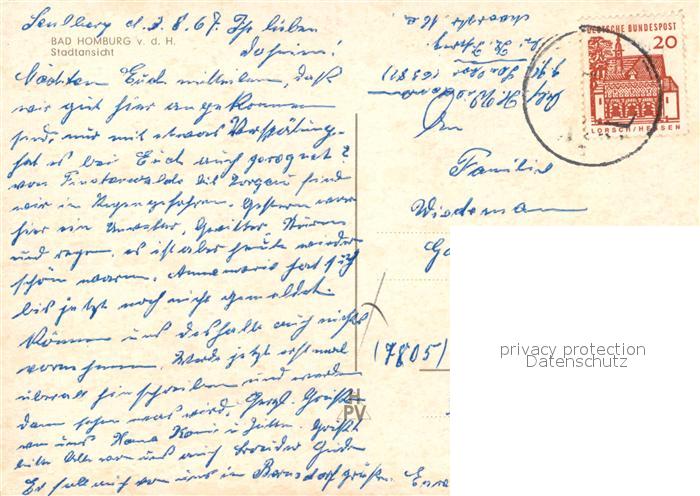 Seulberg d. 3.8.67. Ihr lieben
daheim!
BAD HOMBURG v. d. H.
Stadtansicht
Möchten Euch mitteilen, daß
wir gut hier angekommen
sind, nur mit etwas Verspätung.
hat es bei Euch auch geregnet?
von Finsterwalde bis Torgau sind
wir im Regen gefahren. Gestern war
hier ein Unwetter, Gewitter, Sturm
und regen, es ist aber heute wieder
schön warm. Annemarie hat sich
bis jetzt noch nicht gemeldet.
Können uns deshalb auch nichts
vornehmen. Werde jetzt erst mal
überall hinschreiben und werden
dann sehen was wird. Herzl. Grüße
von uns Hans
bitte Alle von uns auch
von uns in Bernsdorf grüßen.
DEUTSCHE BUNDESPOST
20
LORSCH/HESSEN
An
Familie
Wiedemann
(7805)
H
PV
privacy protection
Datenschutz